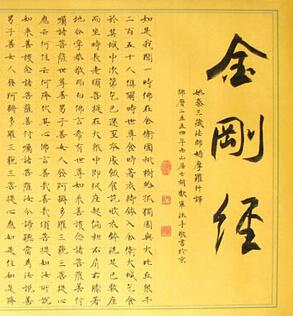 金剛經
姚秦三藏法師鳩摩羅什譯
佛曆二五五四年西山居士胡敬沐手敬書於京
如是我聞一時佛在舍衛國祇樹給孤獨園與大比丘眾千
二百五十人俱爾時世尊食時著衣持鉢入舍衛大城乞食
於其城中次第乞已還至本處飯食訖收衣鉢洗足已敷座
而坐時長老須菩提在大眾中即從座起偏袒右肩右膝著
地合掌恭敬而白佛言希有世尊如來善護念諸菩薩善付
囑諸菩薩世尊善男子善女人發阿耨多羅三藐三菩提心
應云何住云何降伏其心佛言善哉善哉須菩提如汝所說
如來善護念諸菩薩善付囑諸菩薩汝今諦聽當為汝說善
男子善女人發阿耨多羅三藐三菩提心應如是住如是降